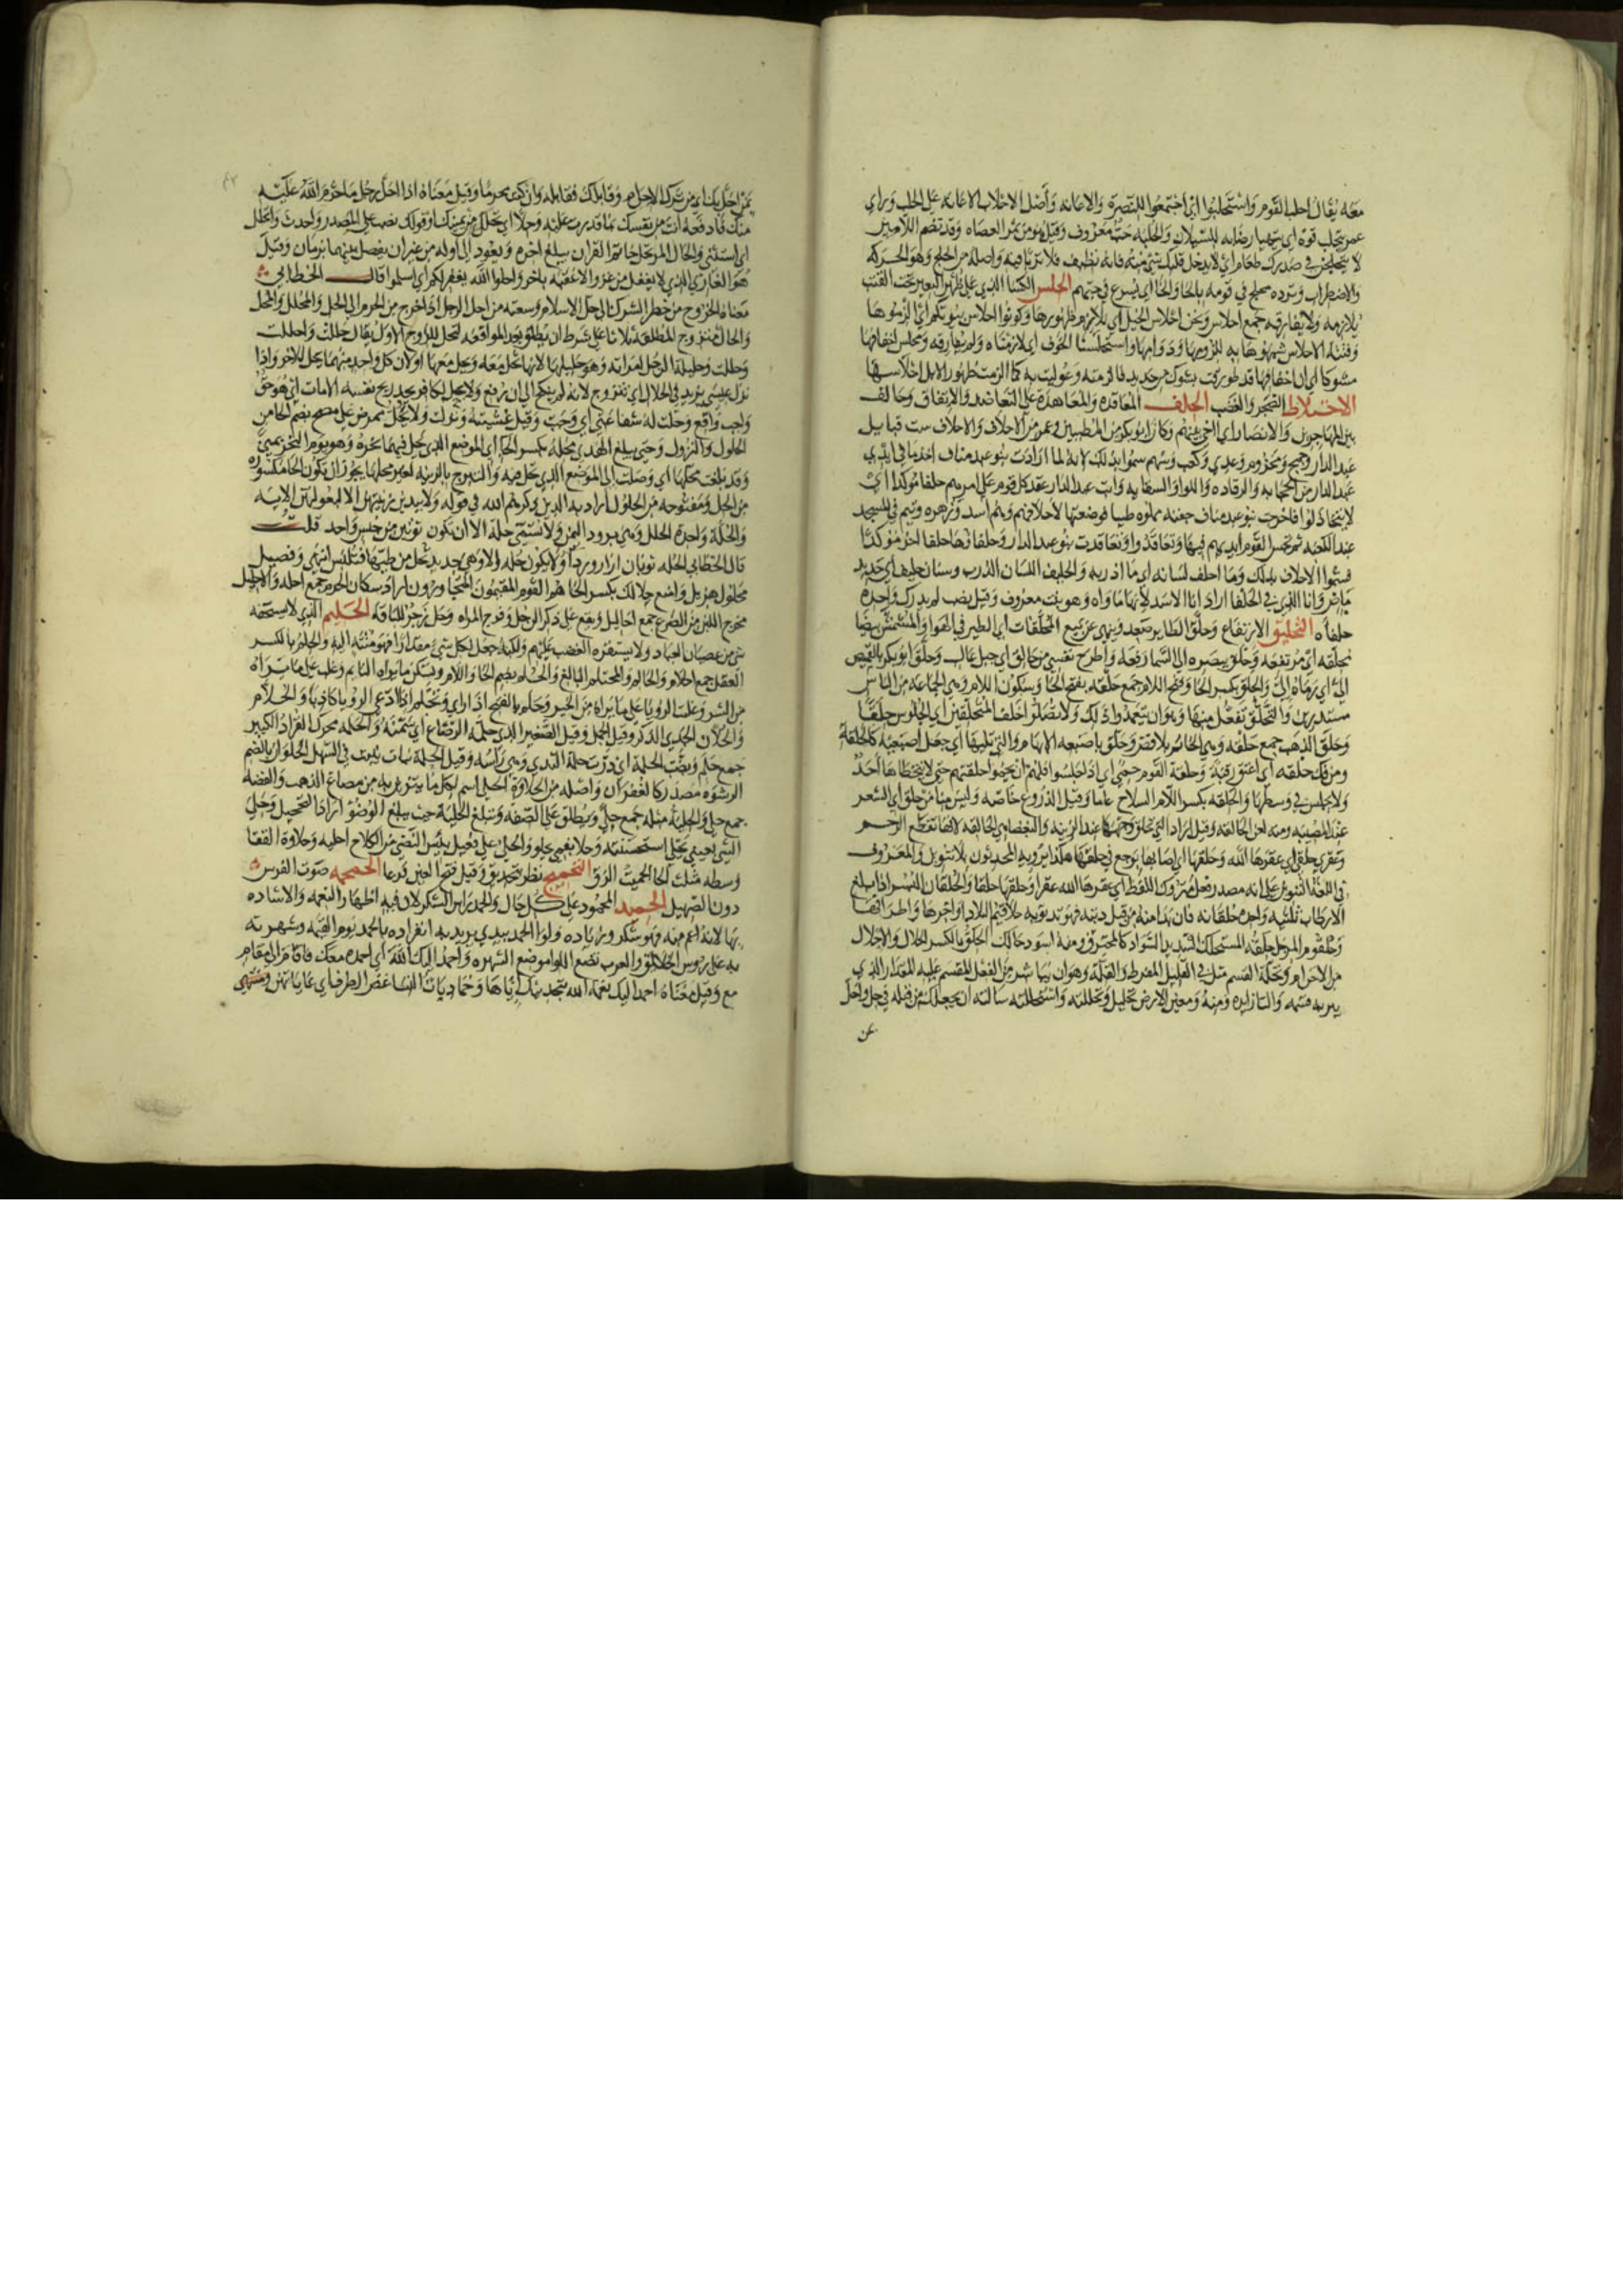 معه يقال احلب القوم واستحلبوا اي اجتمعوا للنصرة والاعانه وأصل الاحلاب الاعانه على الحلب وراي
عمر يتحلب فوه اي يتهيا رضابه للسيلان والحلبه حب معروف وقيل هو من ثمر العضاه وقد تضم اللام
لا يتحلجن في صدرك طعام اي لا يدخل قلبك شي منه فانه نظيف فلا ترتابن فيه واصله من الحلج وهو الحركه
والاضطراب ويروده يحلج في قومه بالحا والخا اي يسرع في حبهم الحلس الكسا الذي على ظهر البعير تحت القتب
يلازمه ولا يفارقه جمع احلاس ونحن احلاس الخيل اي نلازم ظهورها وكونوا احلاس بيوتكم اي الزموها
وفتنه الاحلاس شبهوها به للزومها ودوامها واستحلسنا الخوف اي لازمناه ولم نفارقه ومحلس اخفافها
مشوكا اي ان اخفافها قد طورقت بشوك من حديد فالزمته وعوليت به كما الزمت ظهور الابل احلاسها
الاحتلاط الضجر والغضب الحلف المعاقده والمعاهدة على التعاضد والاتفاق وحالف
بين المهاجرين والانصار اي اخى بينهم وكان ابو بكر من المطيبين وعمر من الاحلاف والاحلاف ست قبايل
عبد الدار وجمح ومخزوم وعدي وكعب وسهم سموا بذلك لانه لما ارادت بنو عبد مناف اخذ ما في ايدي
عبد الدار من الحجابه والرفاده واللوا والسقايه وابت عبد الدار عقد كل قوم على امرهم حلفا موكدا اي
لا يتخاذلوا فاخرجت بنو عبد مناف جفنه مملوه طيبا فوضعتها لاحلافهم وهم أسد وزهره وتيم في المسجد
عند الكعبه ثم غمس القوم ايديهم فيها وتعاقدوا وتعاقدت بنو عبد الدار وحلفاؤها حلفا اخر موكدا
فسموا الاحلاف بذلك وما احلف لسانه اي ما اذربه والحليف اللسان الذرب وسنان حليف اي حديد
ماض وانا الذي في الحلفا اراد انا الاسد لانها ماواه وهو نبت معروف وقيل قصب لم يدرك واحده
حلفاه التحليق الارتفاع وحلق الطاير صعد ونهى عن بيع المحلقات اي الطير في الهوا والشمس بيضا
محلقه اي مرتفعه وحلق ببصره الى السما رفعه واطرح نفسي من حالق اي جبل عال وحلق ابو بكر بالقميص
الي اي رماه الي والحلق بكسر الحا وفتح اللام جمع حلقه بفتح الحا وسكون اللام وهي الجماعه من الناس
مستديرين والتحلق تفعل منها وهو ان يتعمدوا ذلك ولا تصلوا خلف المتحلقين اي الجلوس حلقا
وحلق الذهب جمع حلقه وهي الخاتم بلا فص وحلق باصبعه الابهام والتي تليها اي جعل اصبعيه كالحلقه
ومن فك حلقه اي اعتق رقبة وحلقة القوم حمى اي اذا جلسوا فلهم ان يحموا حلقتهم حتى لا يتخطاها احد
ولا يجلس في وسطها والحلقه بكسر اللام السلاح عاما وقيل الدروع خاصه وليس منا من حلق اي الشعر
عند المصيبه ومنه لعن الحالقه وقيل اراد التي تحلق وجهها عند الزينه والبغضا هي الحالقه لانها تقطع الرحم
وعقرى حلقى اي عقرها الله وحلقها اي اصابها بوجع في حلقها هكذا يرويه المحدثون بلا تنوين والمعروف
في اللغة التنوين على انه مصدر فعل متروك اللفظ اي عقرها الله عقرا وحلقها حلقا والحلقان البسر اذا بلغ
الارطاب ثلثيه واحده حلقانه فان بدا منه من قبل ذنبه فهو تذنوبه حلاقيم البلاد اواخرها واطرافها
وحلقوم المرء حلقه المستحلك الشديد السواد كالمحترق ومنه اسود حالك الحل بالكسر الحلال والاحلال
من الاحرام وتحلة القسم مثل في القليل المفرط والقله وهو ان يباشر من الفعل المقسم عليه المقدار الذي
يبر به قسمه والتا زايده ومنه ومعين الارض تحليل وتحللته واستحللته سالته ان يجعلك من قبله في حل واحل
عن
عمن احل بك اي من ترك الاحرام وقاتلك فقاتله وان كنت محرما وقيل معناه اذا احل رجل ما حرم الله عليه
منك فادفعه انت من نفسك بما قدرت عليه وحلا اي تحللي من يمينك وقولك نصب على المصدر واحدث وانحلل
اي استثنى والحال المرتحل خاتم القران يبلغ اخره ويعود الى أوله من غير ان يفصل بينهما بزمان وقيل
هو الغازي الذي لا يقفل من غزو الا عقبه باخر واحلوا الله يغفر لكم اي اسلموا قال الخطابي
معناه الخروج من خطر الشرك الى حل الاسلام وسعته من احل الرجل اذا خرج من الحرم الى الحل والمحلل والمحل
والحال من تزوج المطلقه ثلاثا على شرط ان يطلق بعد المواقعه لتحل للزوج الاول يقال حللت واحللت
وحللت وحليلة الرجل امراته وهو حليلها لانها تحل معه ويحل معها او لان كل واحد منهما يحل للاخر واذا
نزل عيسى يزيد في الحلال اي تزوج لانه لم ينكح الى ان رفع ولا يحل لكافر يجد ريح نفسه الا مات اي هو حق
واجب واقع وحلت له شفاعتي اي وجبت وقيل غشيته ونزلت ولا يحل ممرض على مصح بضم الحا من
الحلول والنزول وحتى يبلغ الهدي محله بكسر الحا اي الموضع الذي يحل فيهما نحره وهو يوم النحر بمنى
وقد بلغت محلها اي وصلت الى الموضع الذي تحل فيه والتبرج بالزينه لغير محلها يجوز ان يكون الحا مكسوره
من الحل ومفتوحه من الحلول أراد به الذين ذكرهم الله في قوله ولا يبدين زينتهن الا لبعولتهن الايه
والحلة واحدة الحلل وهي برود اليمن ولا تسمى حلة الا ان تكون ثوبين من جنس واحد قلت
قال الخطابي الحله ثوبان ازار وردا ولا يكون حله الا وهي جديد تحل من طيها فتلبس انتهى وفصيل
محلول هزيل واضع حلالك بكسر الحا هم القوم المقيمون المتجاورون اراد سكان الحرم جمع احله والاحليل
مخرج اللبن من الضرع جمع احاليل ويقع على ذكر الرجل وفرج المراه وحل زجر للناقه الحليم الذي لا يستخفه
شي من عصيان العباد ولا يستفزه الغضب عليهم ولكنه جعل لكل شي مقدارا فهو منته اليه والحلم بالكسر
العقل جمع احلام والحالم والمحتلم البالغ والحلم بضم الحا واللام ويسكن ما يراه النايم وغلب على ما يراه
من الشر وغلبت الرويا على ما يراه من الخير وحلم بالفتح اذا راي وتحلم اذا ادعى الرويا كاذبا والحلام
والحلان الجدي الذكر وقيل الحمل وقيل الصغير الذي حلمه الرضاع اي سمنه والحلمه محركه القراد الكبير
جمع حلم وبضت الحلمة اي درت حلمة الثدي وهي راسه وقيل الحلمة نبات ينبت في السهل الحلوان بالضم
الرشوه مصدر كالغفران واصله من الحلاوة الحلي اسم لكل ما يتزين به من مصاغ الذهب والفضه
جمع حلي والحلية مثله جمع حلى ويطلق على الصفه وتبلغ الحلية حيث يبلغ الوضوء اراد التحجيل وحلي
الشي بعيني يحلى استحسنته وحلا بفمي يحلو والحلي على فعيل يبيس النصي من الكلا واحليه وحلاوة القفا
وسطه مثلث الحا الحميت الزق التحميج نظر بتحديق وقيل فتح العين فزعا الحمحمه صوت الفرس
دون الصهيل الحميد المحمود على كل حال والحمد راس الشكر لان فيه اظهار النعمه والاشاده
بها لانه اعم منه فهو شكر وزياده ولوا الحمد بيدي يريد به انفراده بالحمد يوم القيمه وشهرته
به على روس الخلايق والعرب تضع اللوا موضع الشهره واحمد اليك الله اي احمده معك فاقام الى مقام
مع وقيل معناه احمد اليك نعمة الله بتحديثك اياها وحماديات النسا غض الطرف اي غاياتهن ومنتهى